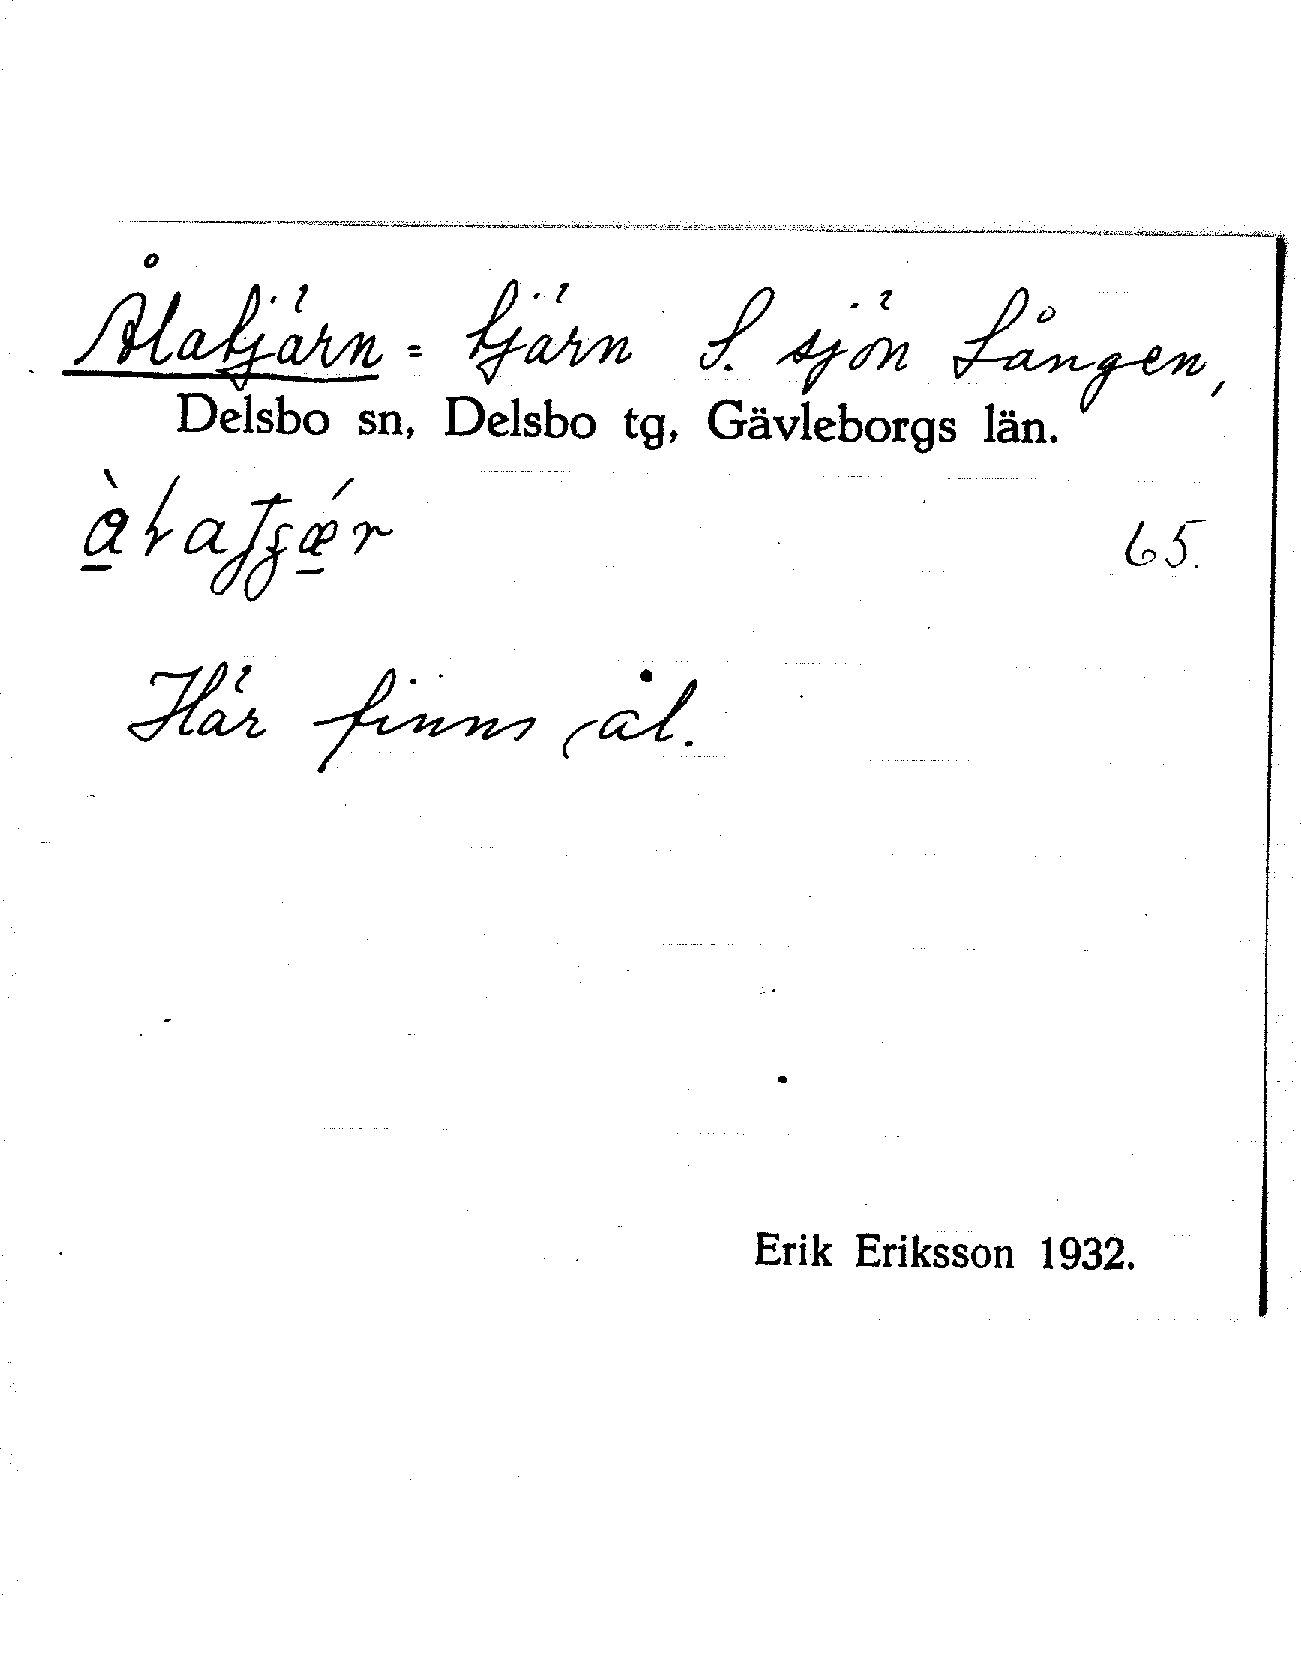 Ålatjärn = tjärn S. sjön Lången,
Delsbo sn, Delsbo tg, Gävleborgs län.
65.
Här finns ål.
Erik Eriksson 1932.